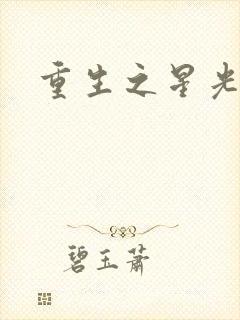 重生之星光
碧玉萧